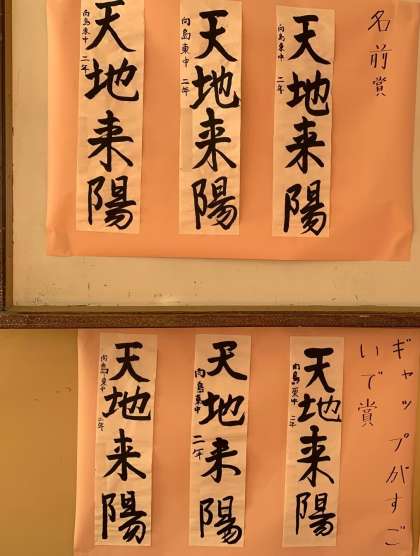 名前賞
天地来陽
向島東中 二年
天地来陽
向島東中 二年
天地来陽
向島東中 二年
ギャップがすご
いで賞
天地来陽
向島東中 二年
天地来陽
向島東中 二年
天地来陽
向島東中 二年